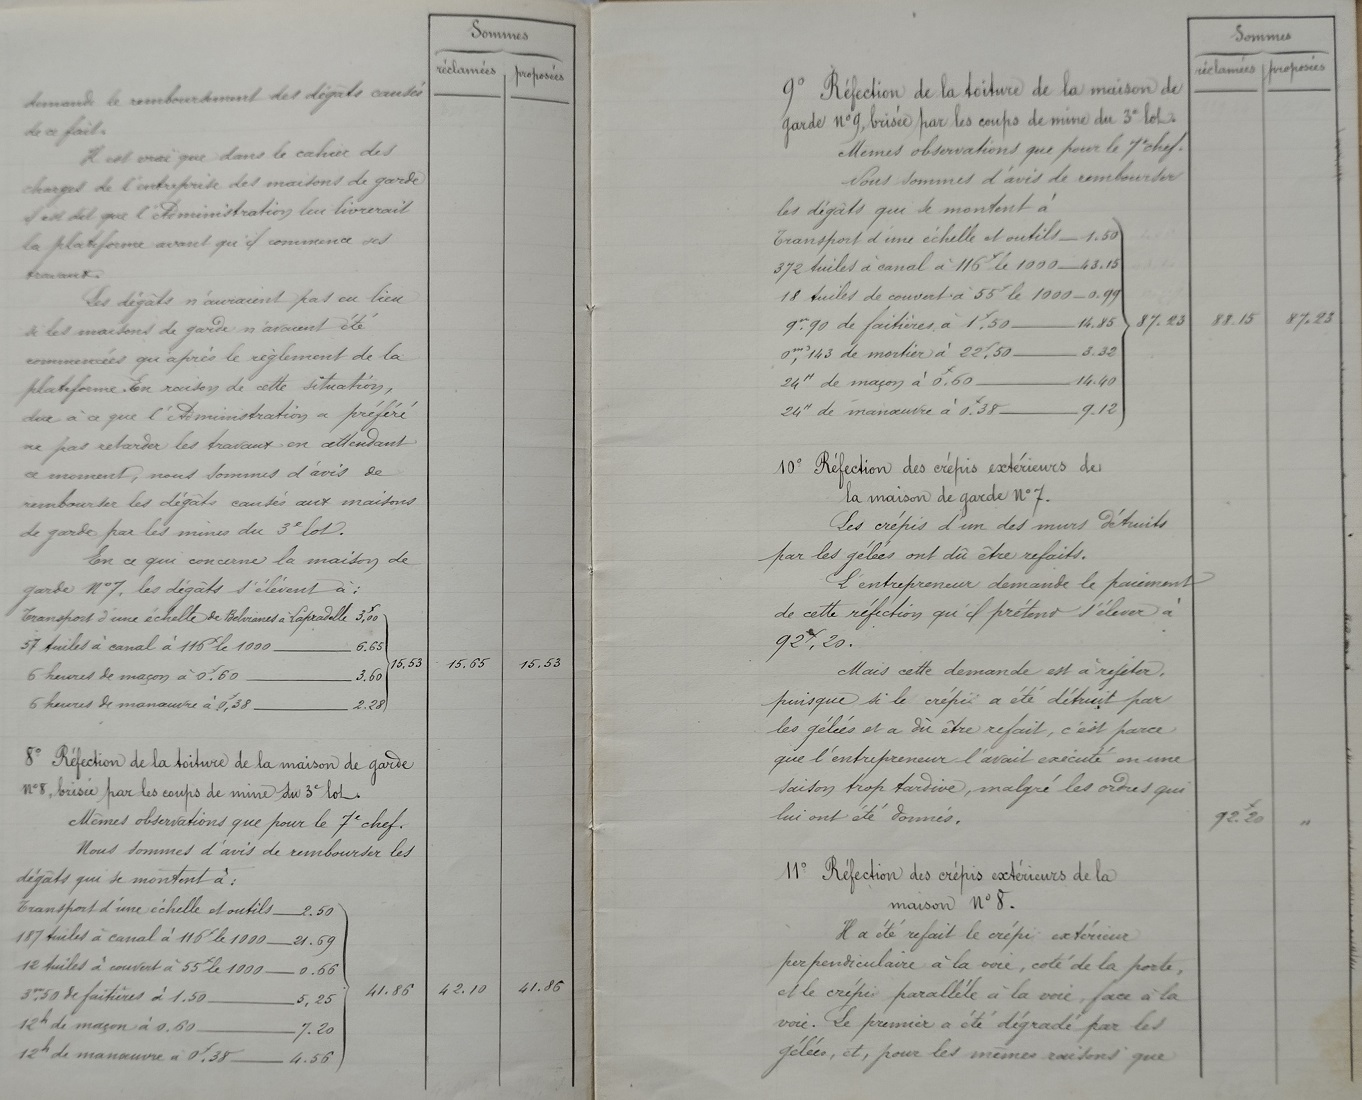 Sommes
réclamées proposées
demande le remboursement des dégâts causés
de ce fait.
Il est vrai que dans le cahier des
charges de l'entreprise des maisons de garde
il est dit que l'Administration lui livrerait
la plateforme avant qu'il commence ses
travaux.
Les dégâts n'auraient pas eu lieu
si les maisons de garde n'avaient été
commencées qu'après le règlement de la
plateforme. En raison de cette situation,
due à ce que l'Administration a préféré
ne pas retarder les travaux en attendant
ce moment, nous sommes d'avis de
rembourser les dégâts causés aux maisons
de garde par les mines du 3e lot.
En ce qui concerne la maison de
garde No 7, les dégâts s'élèvent à :
Transport d'une échelle de Belvianes à Lapradelle 3f,00
57 tuiles à canal à 116f le 1000 6.65
6 heures de maçon à 0f.60 3.60
6 heures de manœuvre à 0f,38 2.28
15.53 15.65 15.53
8° Réfection de la toiture de la maison de garde
No 8, brisée par les coups de mine du 3e lot.
Mêmes observations que pour le 7e chef.
Nous sommes d'avis de rembourser les
dégâts qui se montent à :
Transport d'une échelle et outils 2.50
187 tuiles à canal à 116f le 1000 21.69
12 tuiles à couvert à 55f le 1000 0.66
3m.50 de faitières à 1.50 5,25
12h de maçon à 0.60 7.20
12h de manœuvre à 0f.38 4.56
41.86 42.10 41.86
Sommes
réclamées proposées
9° Réfection de la toiture de la maison de
garde No 9, brisée par les coups de mine du 3e lot.
Memes observations que pour le 7e chef.
Nous sommes d'avis de rembourser
les dégâts qui se montent à
Transport d'une échelle et outils 1.50
372 tuiles à canal à 116f le 1000 43.15
18 tuiles de couvert à 55f le 1000 0.99
9m.90 de faitières à 1f.50 14.85
0m3,143 de mortier à 22f.50 3.32
24h de maçon à 0f.60 14.40
24h de manœuvre à 0f.38 9.12
87.23 88.15 87.23
10° Réfection des crépis extérieurs de
la maison de garde No 7.
Les crépis d'un des murs détruits
par les gelées ont dû être refaits.
L'entrepreneur demande le paiement
de cette réfection qu'il prétend s'élever à
92f,20.
Mais cette demande est à rejeter,
puisque si le crépis a été détruit par
les gelées et a dû être refait, c'est parce
que l'entrepreneur l'avait exécuté en une
saison trop tardive, malgré les ordres qui
lui ont été donnés. 92f.20 "
11° Réfection des crépis extérieurs de la
maison No 8.
Il a été refait le crépi extérieur
perpendiculaire à la voie, coté de la porte,
et le crépi parallèle à la voie, face à la
voie. Le premier a été dégradé par les
gelées, et, pour les mêmes raisons que